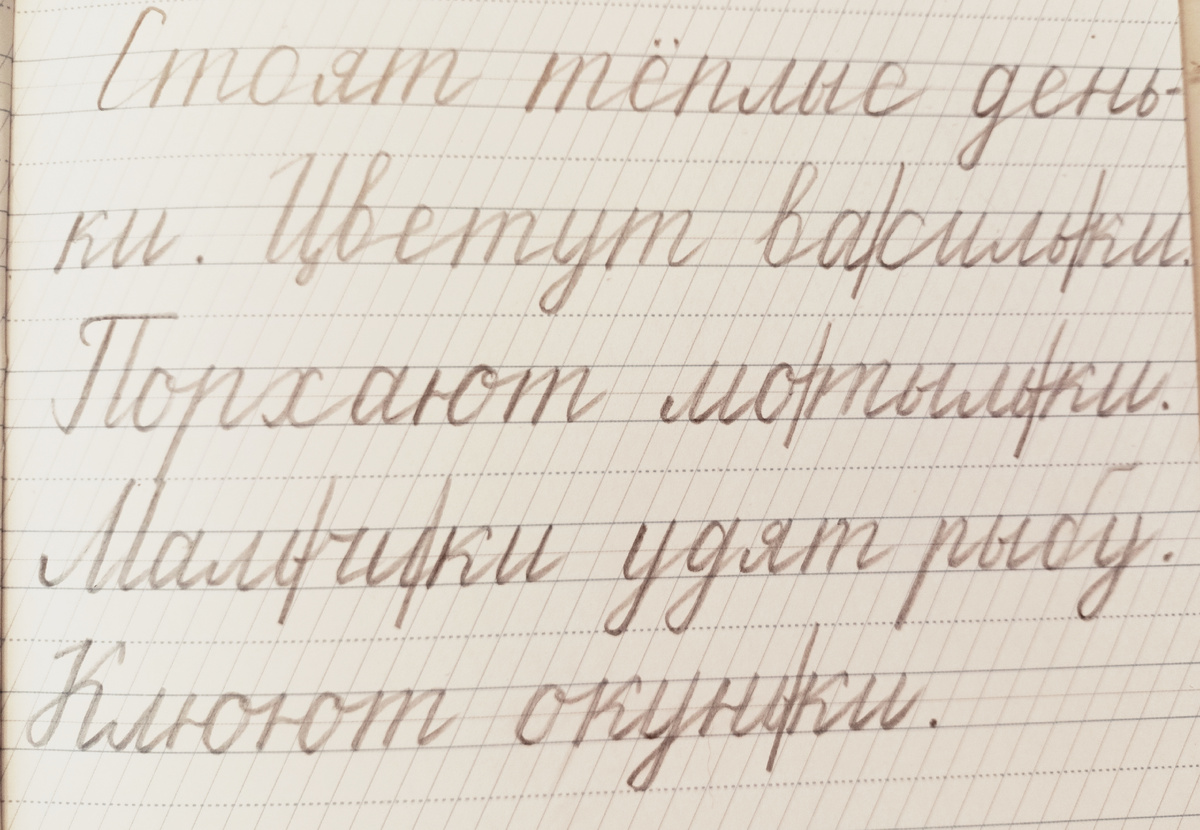 Стоят тёплые день-
ки. Цветут ва/силь/ки.
Порхают мо/тыль/ки.
Маль/чи/ки удят рыбу.
Клюют окунь/ки.